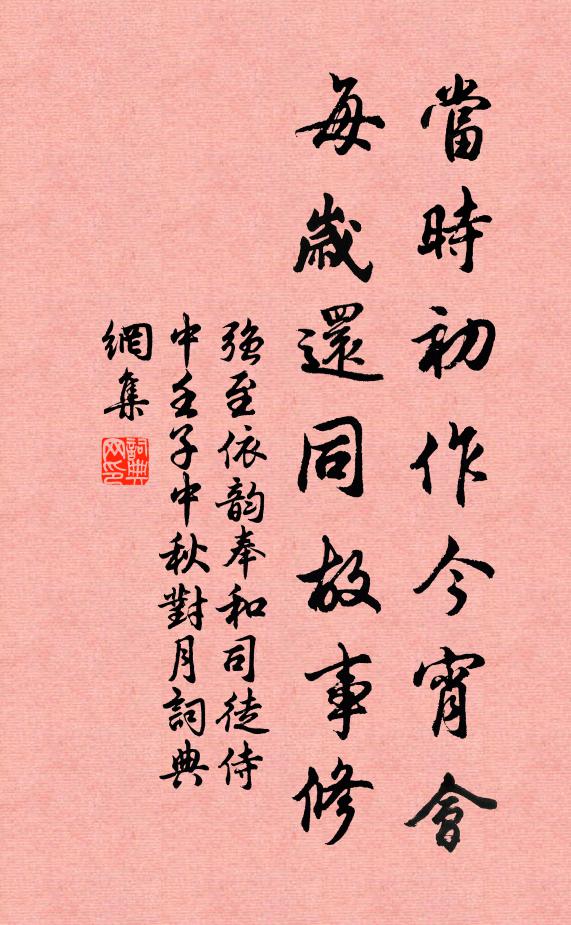 當時初作今宵會
每歲還同故事修
強至依韵奉和司徒侍
中壬子中秋對月詞典
網集
詞典网印